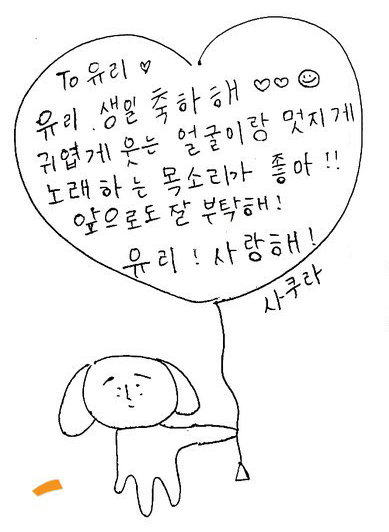 To 유리 ♡
유리 생일 축하해 ♡♡☺
귀엽게 웃는 얼굴이랑 멋지게
노래하는 목소리가 좋아!!
앞으로도 잘 부탁해!
유리! 사랑해!
사쿠라